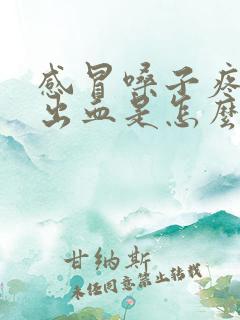 感冒嗓子疼
出血是怎麽
甘纳斯
未经同意禁止转载